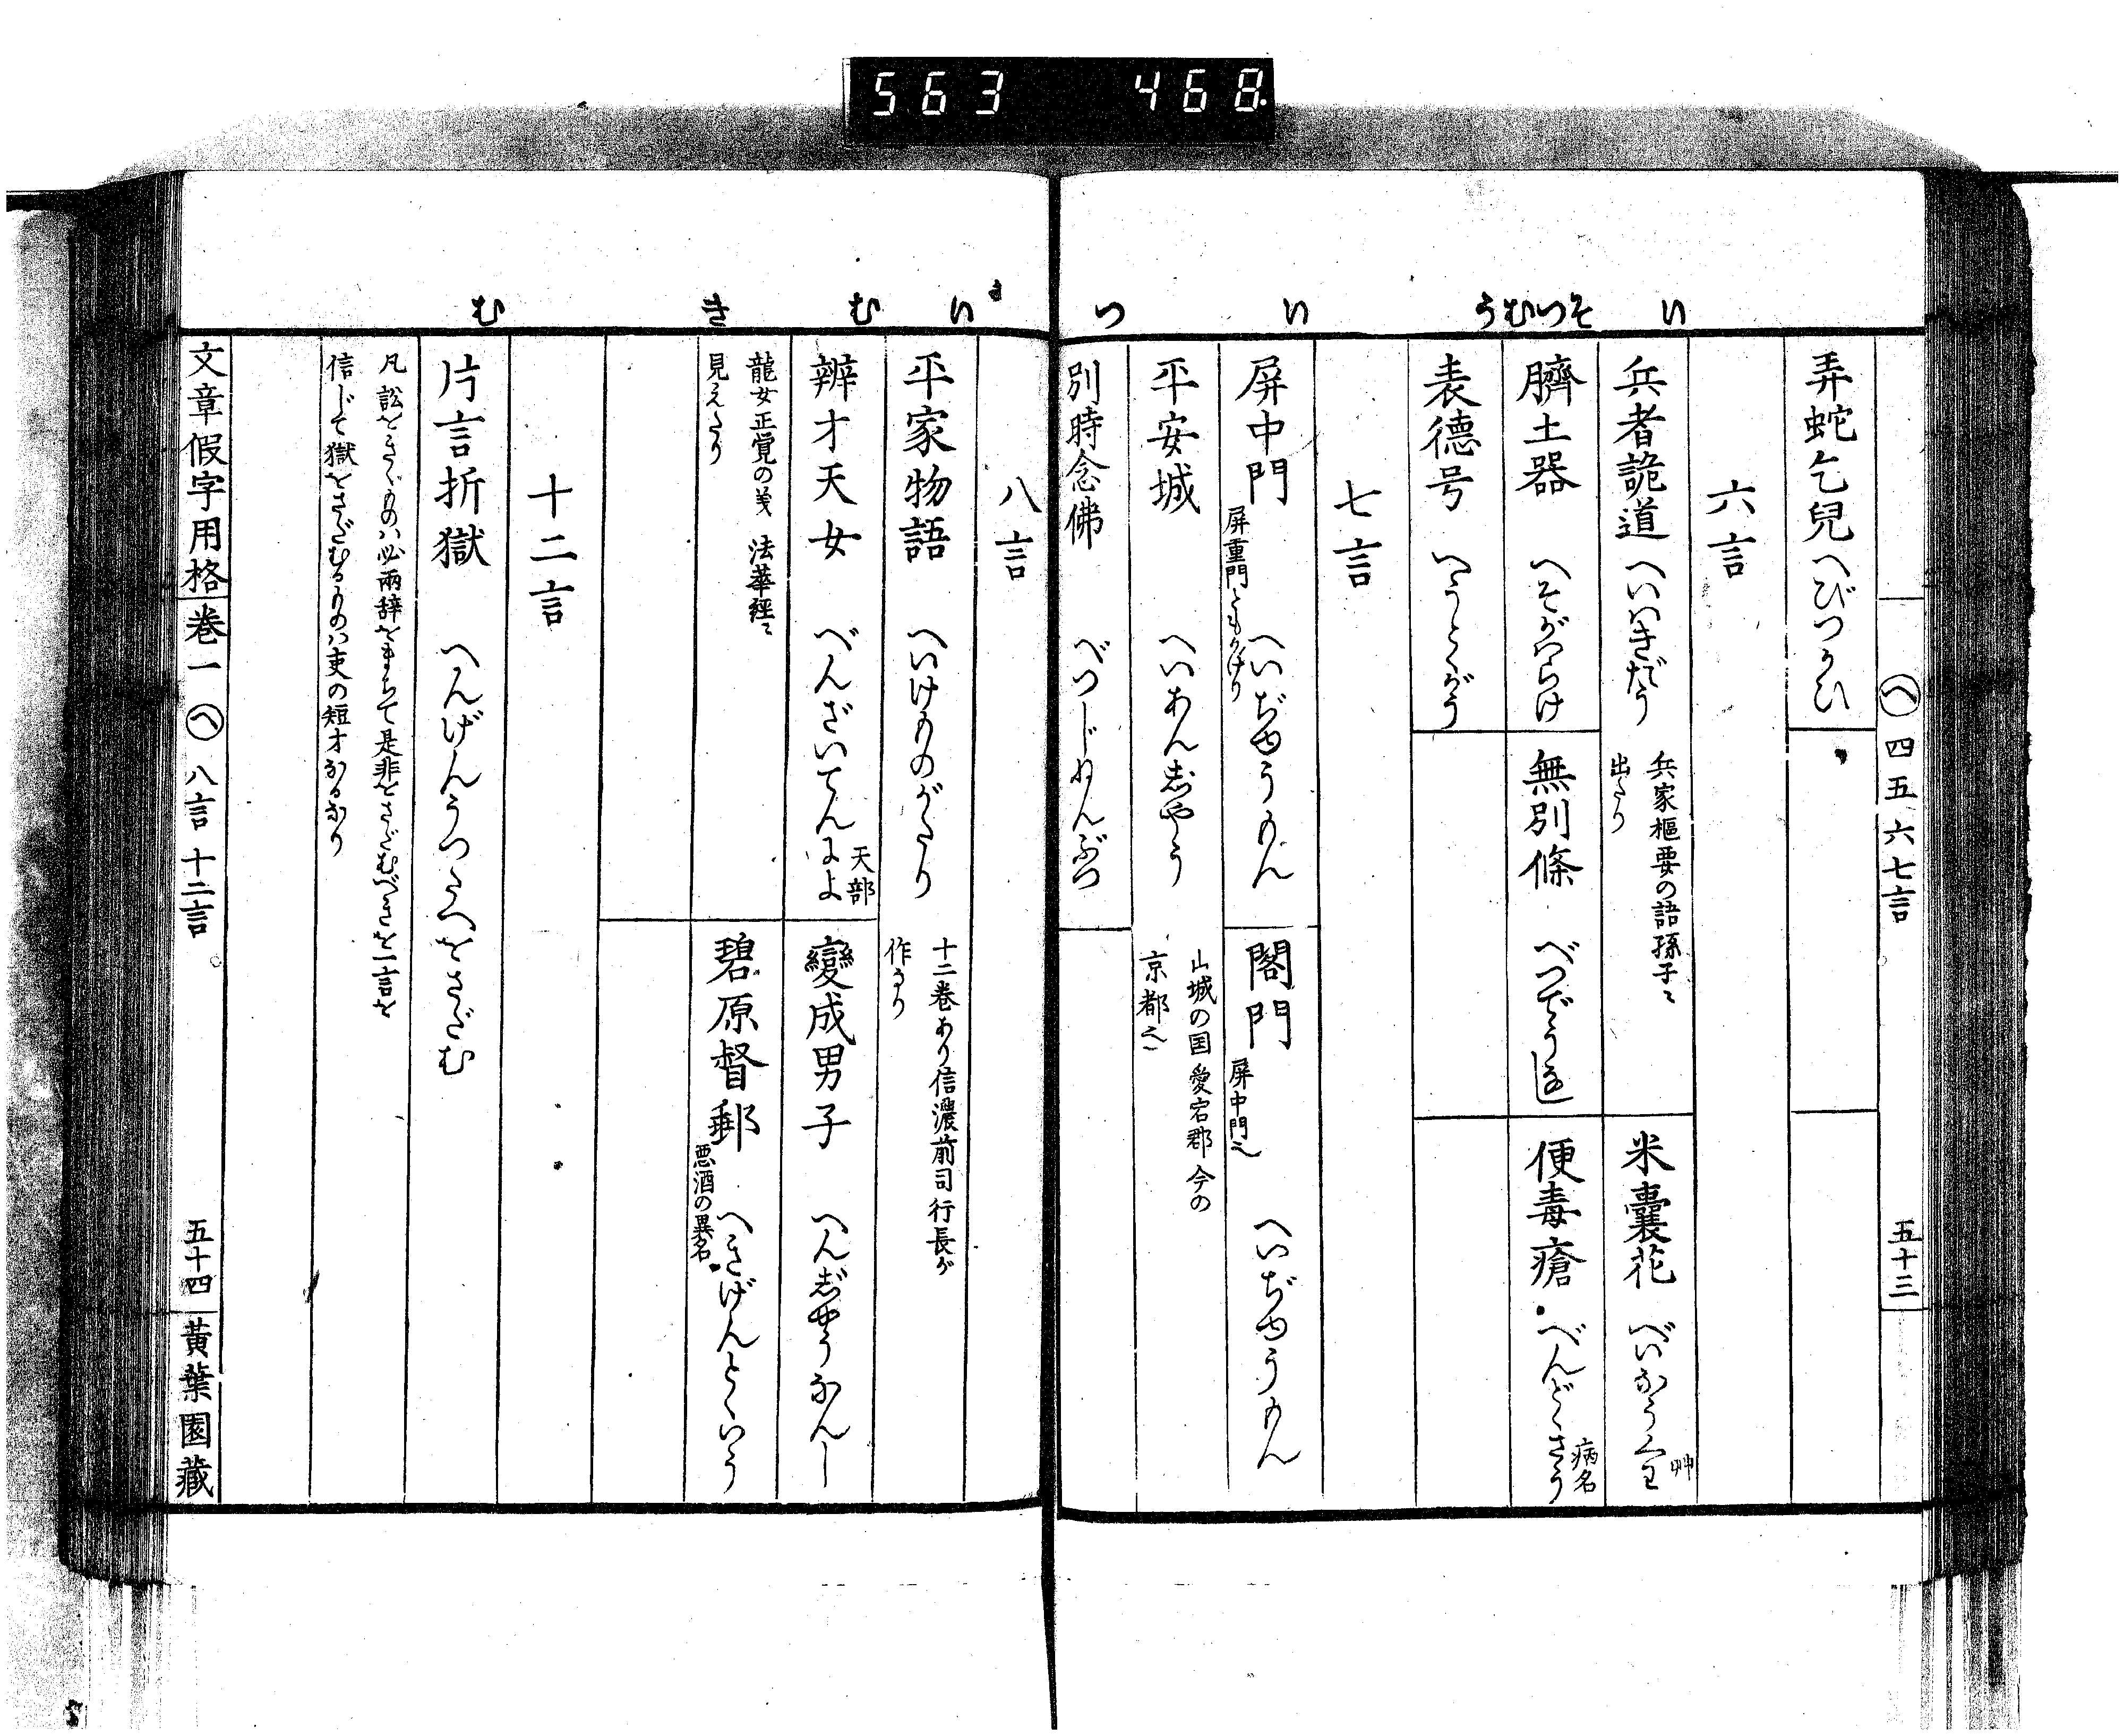 563 468
い
そつむう
い
つ
へ 四五六七言 五十三
弄蛇乞兒 へびつかひ
六言
兵者詭道 へいはきだう 兵家樞要の語孫子ニ
出たり
米嚢花 べいなうくわ 艸
臍土器 へそがはらけ
無別條 べつでうなし
便毒瘡 べんどくさう 病名
表德号 へうとくがう
七言
屏中門 屏重門ともかけり へいぢゆうもん
閤門 屏中門也 へいぢゆうもん
平安城 へいあんじやう 山城の国愛宕郡今の
京都也
別時念佛 べつじねんぶつ
い
む
き
む
八言
平家物語 へいけものがたり 十二巻あり信濃前司行長が
作なり
辨才天女 べんざいてんによ 天部
變成男子 へんじやうなんし
龍女正覚の義 法華經ニ
見えたり
碧原督郵 悪酒の異名 へきげんとくいう
十二言
片言折獄 へんげんうつたへをさだむ
凡訟をきくものハ必兩辞をまちて是非をさだむべきを一言を
信じて獄をさだむるものハ吏の短才なるなり
文章假字用格 巻一 へ 八言 十二言 五十四 黄葉園藏